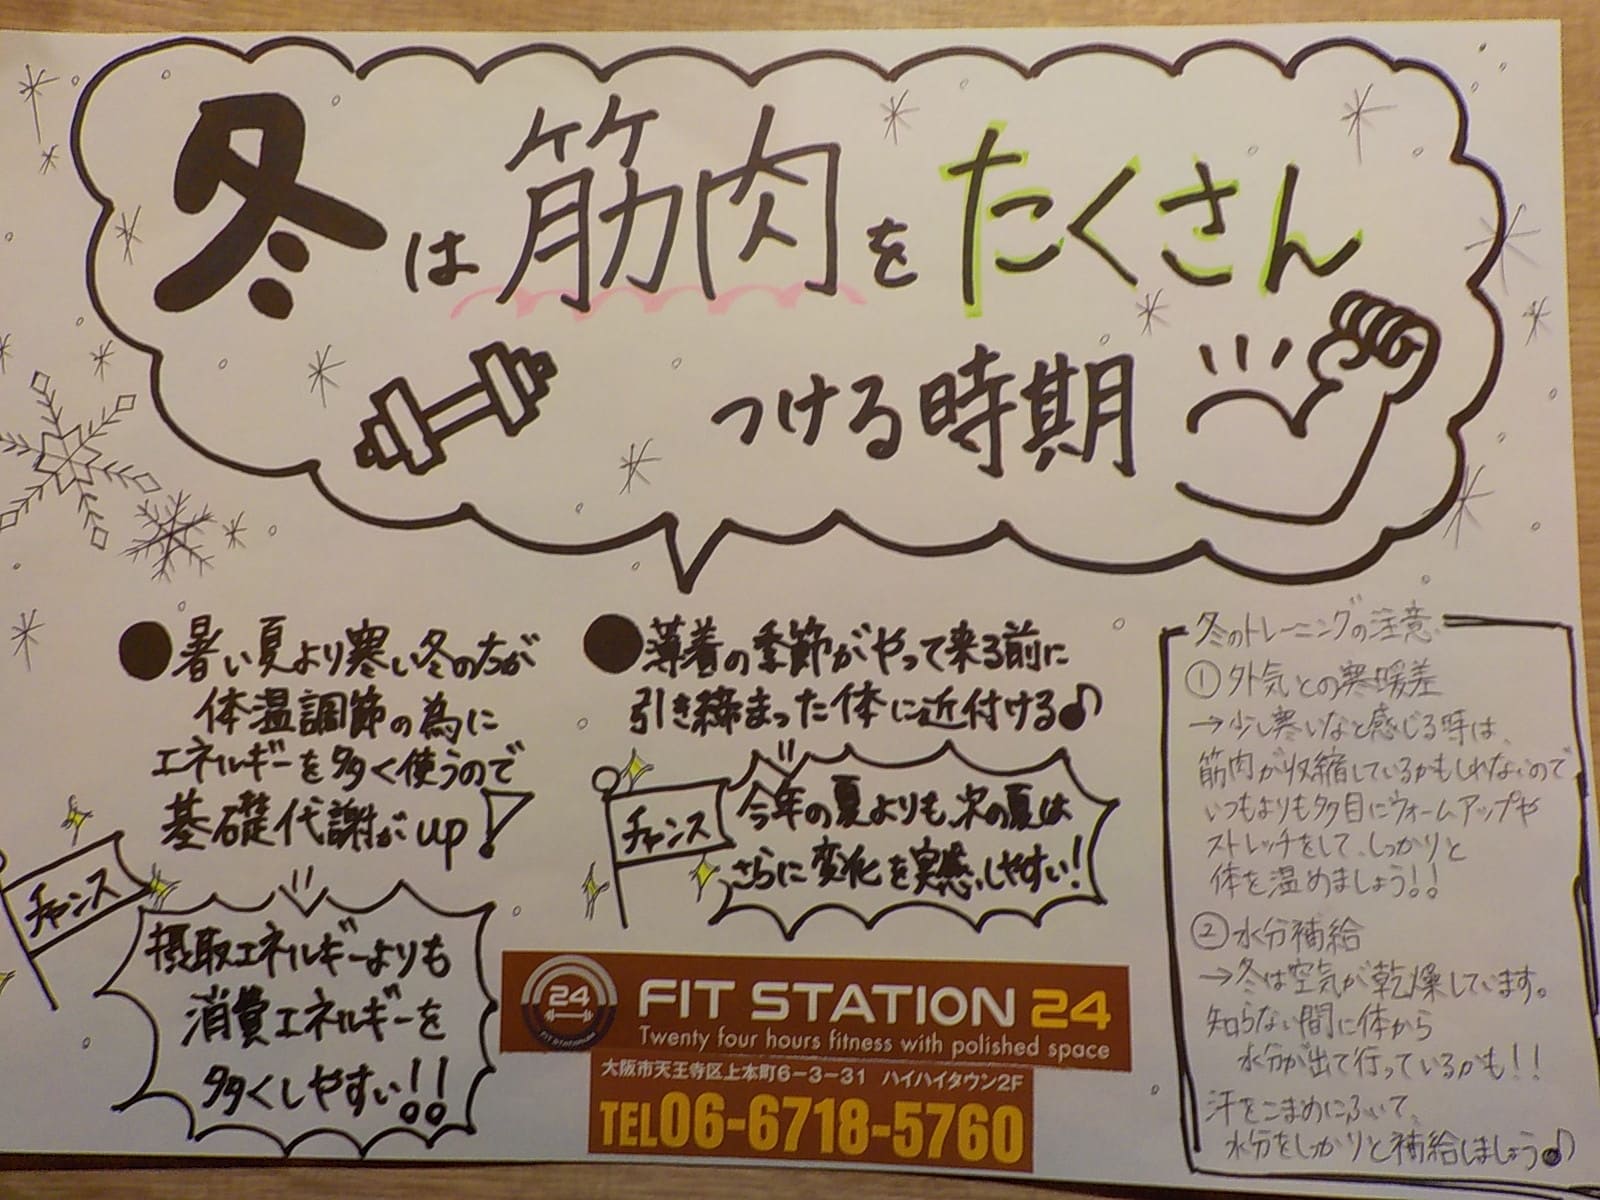 冬は筋肉をたくさん
つける時期
●暑い夏より寒い冬の方が
体温調節の為に
エネルギーを多く使うので
基礎代謝がup!
チャンス
摂取エネルギーよりも
消費エネルギーを
多くしやすい!!
●薄着の季節がやって来る前に
引き締まった体に近付ける♪
チャンス
今年の夏よりも、次の夏は
さらに変化を実感しやすい!
24
FIT STATION 24
Twenty four hours fitness with polished space
大阪市天王寺区上本町6-3-31 ハイハイタウン2F
TEL06-6718-5760
冬のトレーニングの注意
①外気との寒暖差
→少し寒いなと感じる時は、
筋肉が収縮しているかもしれないので
いつもよりも多目にウォームアップや
ストレッチをして、しっかりと
体を温めましょう!!
②水分補給
→冬は空気が乾燥しています。
知らない間に体から
水分が出て行っているかも!!
汗をこまめにふいて、
水分をしっかりと補給しましょう♪